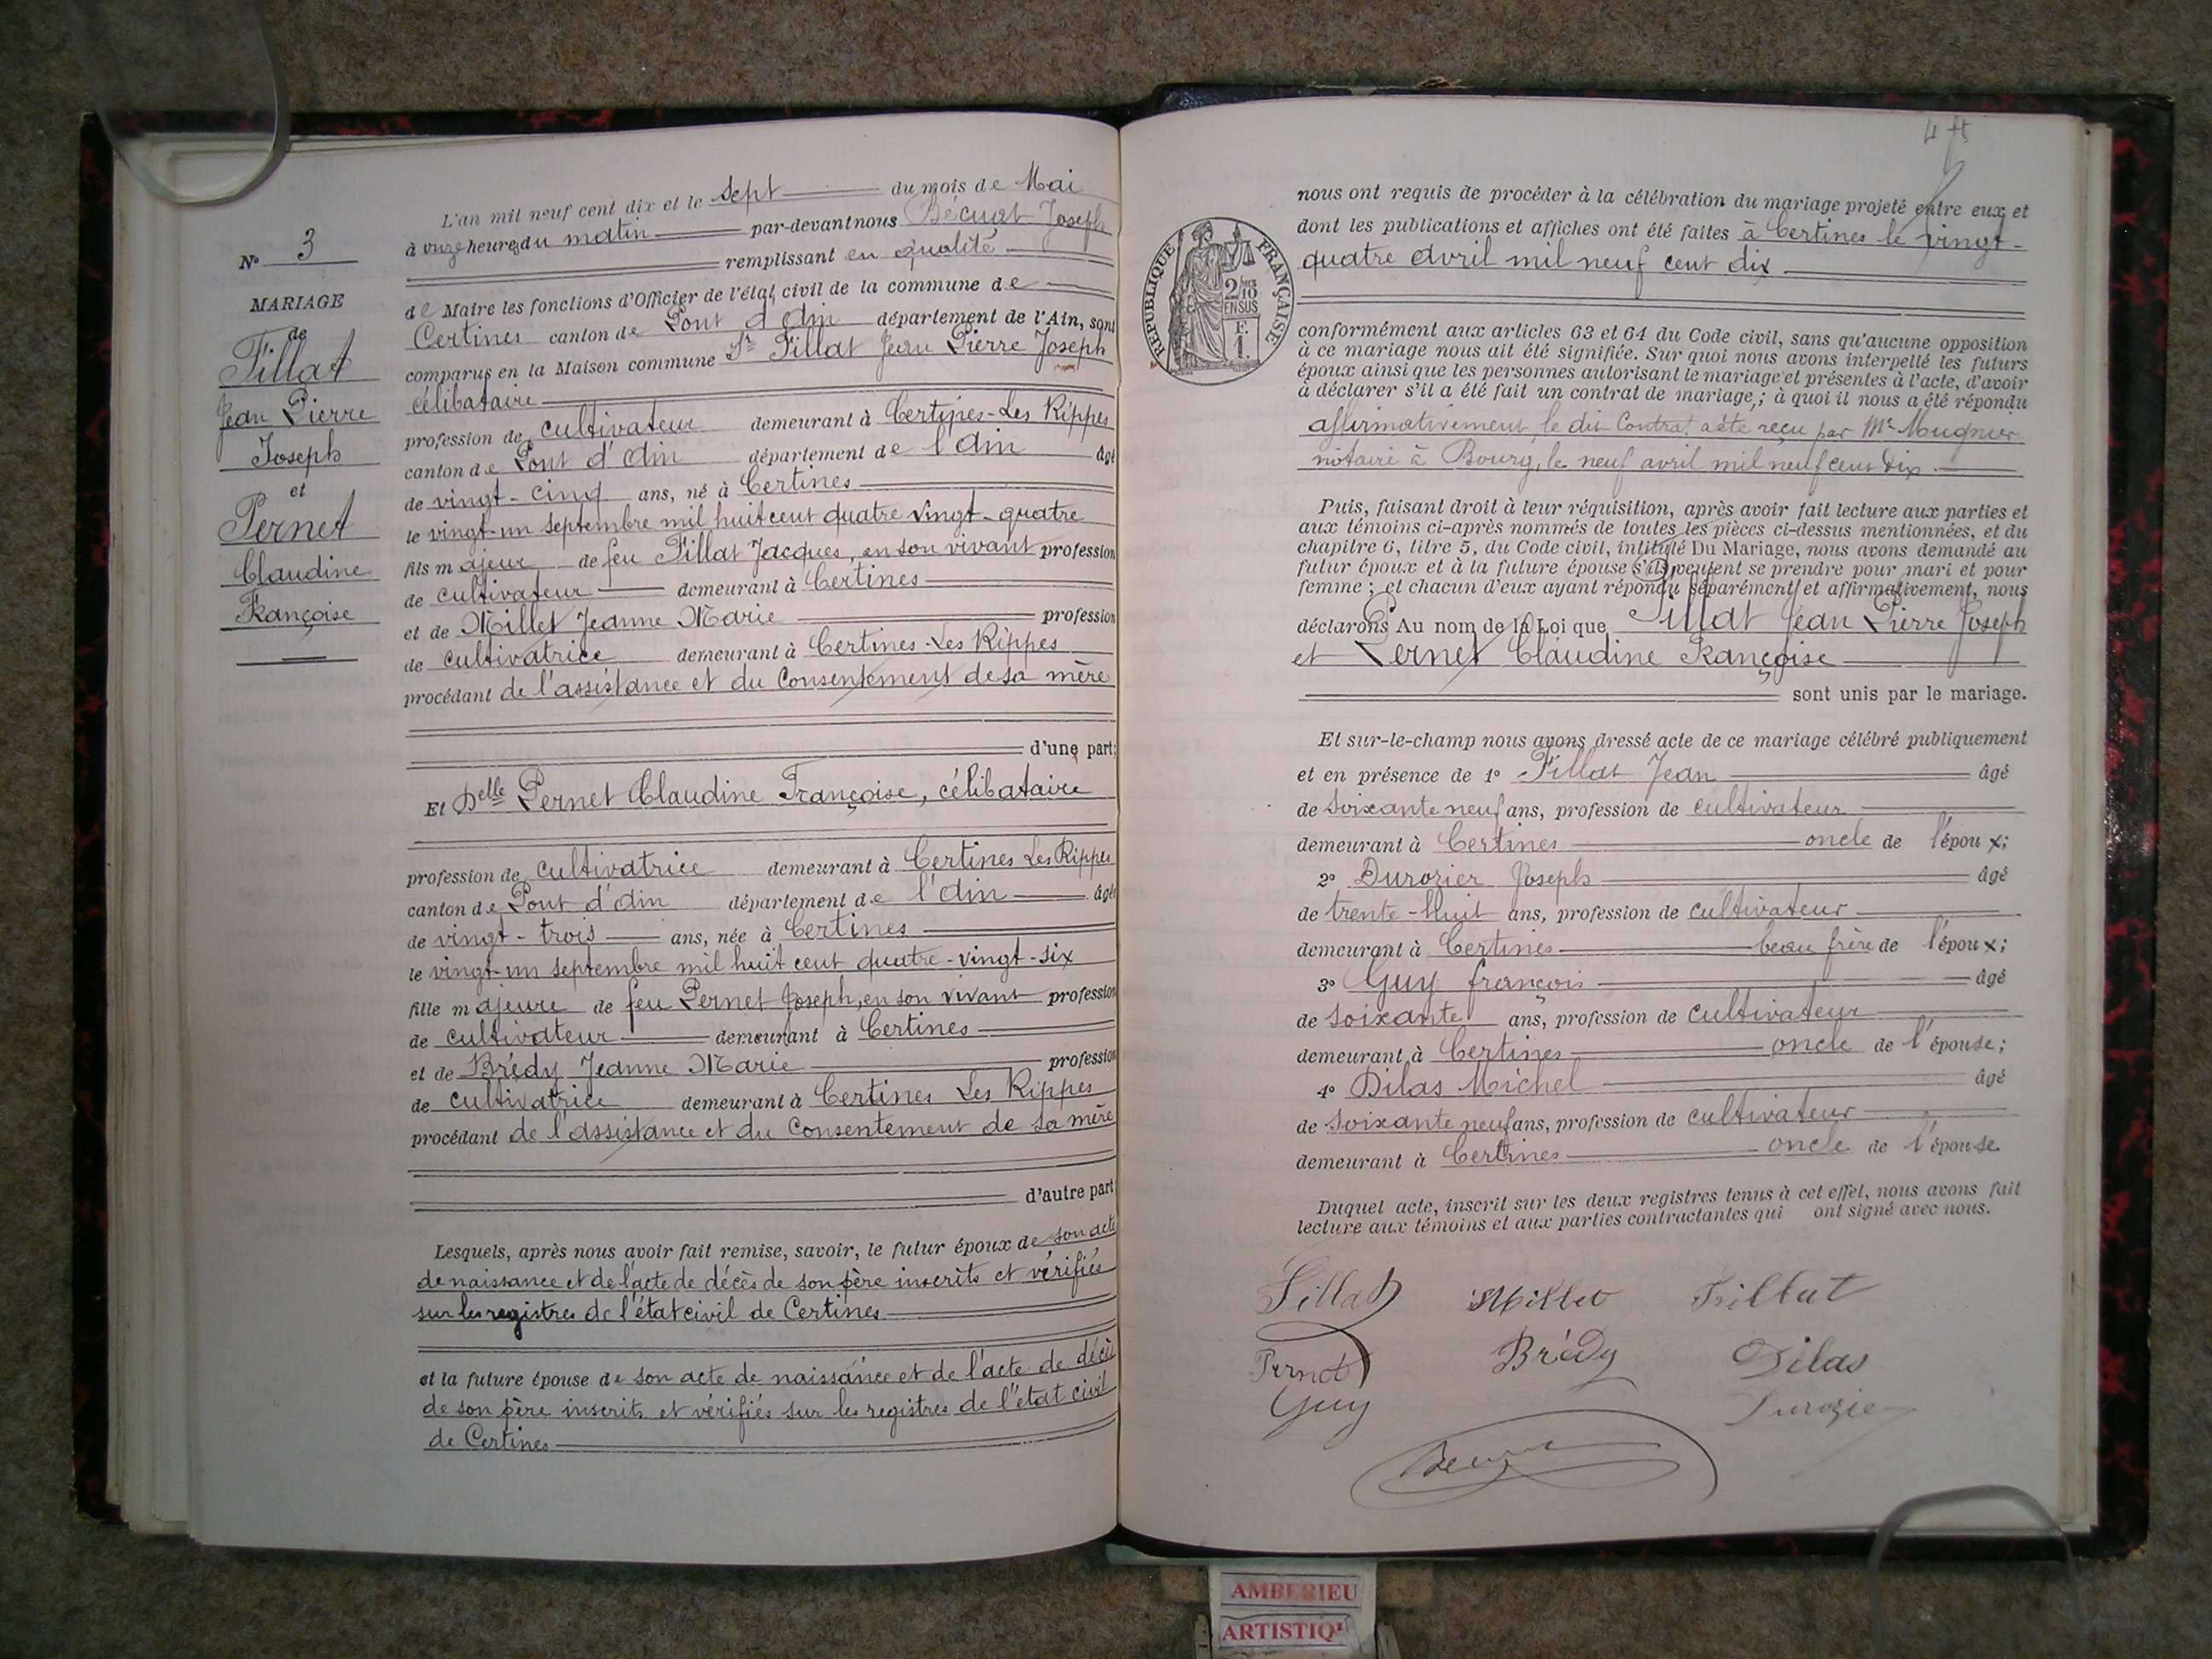 N° 3
MARIAGE
de
Fillat
Jean Pierre
Joseph
et
Pernet
Claudine
Françoise
L'an mil neuf cent dix et le sept du mois de Mai
à onze heures du matin par-devant nous Joseph
remplissant en qualité
de Maire les fonctions d'Officier de l'état civil de la commune de
Certines canton de Pont d'Ain département de l'Ain, sont
comparus en la Maison commune Sr Fillat Jean Pierre Joseph
célibataire
profession de cultivateur demeurant à Certines-Les Rippes
canton de Pont d'Ain département de l'Ain âgé
de vingt-cinq ans, né à Certines
le vingt-un septembre mil huit cent quatre vingt-quatre
fils majeur de feu Fillat Jacques, en son vivant profession
de cultivateur demeurant à Certines
et de Millet Jeanne Marie profession
de cultivatrice demeurant à Certines-Les Rippes
procédant de l'assistance et du Consentement de sa mère
d'une part;
Et Delle Pernet Claudine Françoise, célibataire
profession de cultivatrice demeurant à Certines Les Rippes
canton de Pont d'Ain département de l'Ain âgée
de vingt-trois ans, née à Certines
le vingt-un septembre mil huit cent quatre-vingt-six
fille majeure de feu Pernet Joseph, en son vivant profession
de cultivateur demeurant à Certines
et de Brédy Jeanne Marie profession
de cultivatrice demeurant à Certines Les Rippes
procédant de l'assistance et du Consentement de sa mère
d'autre part
Lesquels, après nous avoir fait remise, savoir, le futur époux de son acte
de naissance et de l'acte de décès de son père inscrits et vérifiés
sur les registres de l'état civil de Certines
et la future épouse de son acte de naissance et de l'acte de décès
de son père inscrits et vérifiés sur les registres de l'état civil
de Certines
RÉPUBLIQUE FRANÇAISE
2/10
EN SUS
F.
1.
nous ont requis de procéder à la célébration du mariage projeté entre eux et
dont les publications et affiches ont été faites à Certines le vingt-
quatre avril mil neuf cent dix
conformément aux articles 63 et 64 du Code civil, sans qu'aucune opposition
à ce mariage nous ait été signifiée. Sur quoi nous avons interpellé les futurs
époux ainsi que les personnes autorisant le mariage et présentes à l'acte, d'avoir
à déclarer s'il a été fait un contrat de mariage,; à quoi il nous a été répondu
affirmativement, le dit Contrat a été reçu par Me Mugnier
notaire à Bourg, le neuf avril mil neuf cent dix.
Puis, faisant droit à leur réquisition, après avoir fait lecture aux parties et
aux témoins ci-après nommés de toutes les pièces ci-dessus mentionnées, et du
chapitre 6, titre 5, du Code civil, intitulé Du Mariage, nous avons demandé au
futur époux et à la future épouse s'ils veulent se prendre pour mari et pour
femme ; et chacun d'eux ayant répondu séparément et affirmativement, nous
déclarons Au nom de la Loi que Fillat Jean Pierre Joseph
et Pernet Claudine Françoise
sont unis par le mariage.
Et sur-le-champ nous avons dressé acte de ce mariage célébré publiquement
et en présence de 1° Fillat Jean âgé
de soixante neuf ans, profession de cultivateur
demeurant à Certines oncle de l'époux;
2° Durozier Joseph âgé
de trente-huit ans, profession de cultivateur
demeurant à Certines beau frère de l'époux;
3° Guy françois âgé
de soixante ans, profession de cultivateur
demeurant à Certines oncle de l'épouse;
4° Dilas Michel âgé
de soixante neuf ans, profession de cultivateur
demeurant à Certines oncle de l'épouse.
Duquel acte, inscrit sur les deux registres tenus à cet effet, nous avons fait
lecture aux témoins et aux parties contractantes qui ont signé avec nous.
Fillat Millet Fillat
Pernet Brédy Dilas
Guy Durozier
AMBERIEU
ARTISTIQ